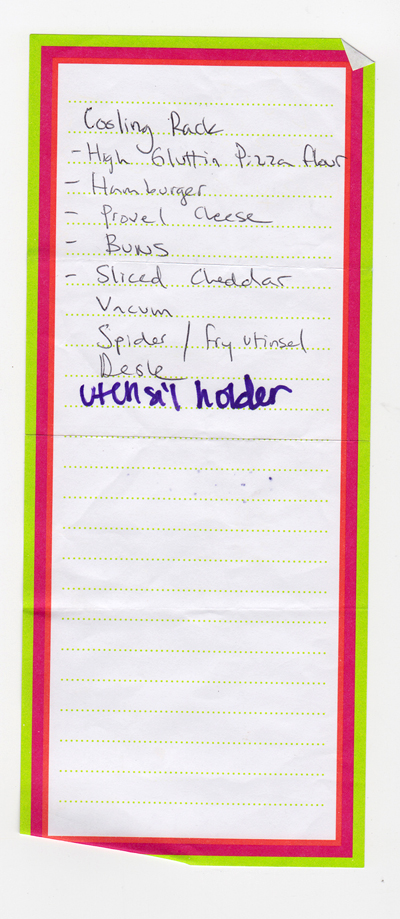 Cooling Rack
- High Gluttin Pizza flour
- Hamburger
- Provel Cheese
- Buns
- Sliced Cheddar
Vacum
Spider / fry utinsel
Desk
utensil holder